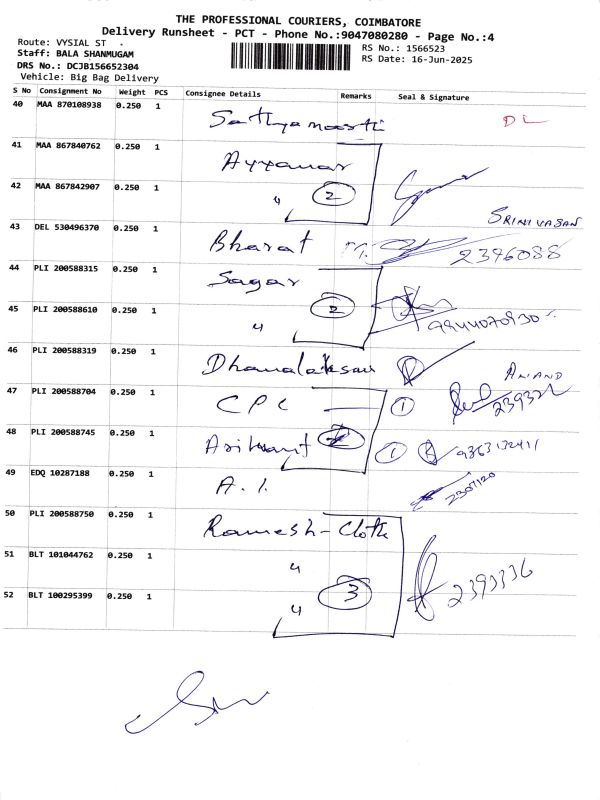 THE PROFESSIONAL COURIERS, COIMBATORE
Delivery Runsheet - PCT - Phone No.:9047080280 - Page No.:4
Route: VYSIAL ST
Staff: BALA SHANMUGAM
DRS No.: DCJB156652304
Vehicle: Big Bag Delivery
RS No.: 1566523
RS Date: 16-Jun-2025
S No Consignment No Weight PCS Consignee Details Remarks Seal & Signature
40 MAA 870108938 0.250 1 Sathyamoorthi DL
41 MAA 867840762 0.250 1 Ayyanar
42 MAA 867842907 0.250 1 〃 2 SRINIVASAN
43 DEL 530496370 0.250 1 Bharat 2396088
44 PLI 200588315 0.250 1 Sagar
45 PLI 200588610 0.250 1 〃 2 9944070930
46 PLI 200588319 0.250 1
47 PLI 200588704 0.250 1 CPC 1 ANAND
48 PLI 200588745 0.250 1 Arihant 1
49 EDQ 10287188 0.250 1 A.I.
50 PLI 200588750 0.250 1 Ramesh-Cloth
51 BLT 101044762 0.250 1 〃
52 BLT 100295399 0.250 1 〃 3 2393336